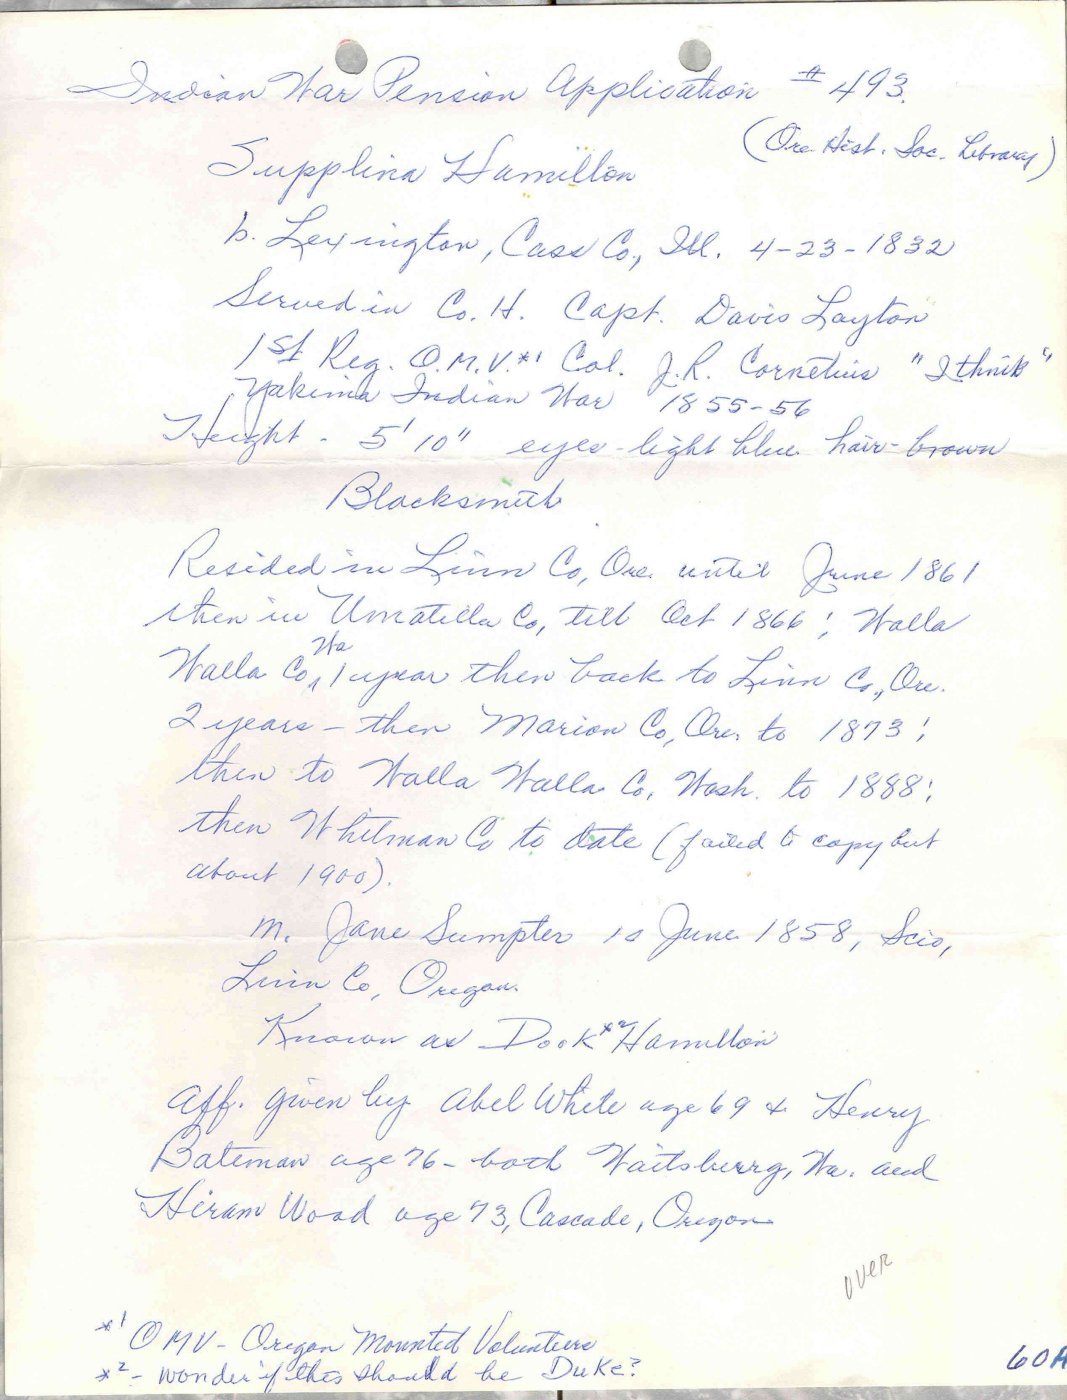 Indian War Pension Application # 493.
(Ore. Hist. Soc. Library)
Supplina Hamilton
b. Lexington, Cass Co., Ill. 4-23-1832
Served in Co. H. Capt. Davis Layton
1st Reg. O.M.V.*1 Col. J.R. Cornelius "I think"
Yakima Indian War 1855-56
Height - 5' 10" eyes - light blue hair - brown
Blacksmith
Resided in Linn Co, Ore. until June 1861
then in Umatilla Co, till Oct 1866; Walla
Walla Co, Wa 1 year then back to Linn Co., Ore.
2 years - then Marion Co, Ore. to 1873;
then to Walla Walla Co, Wash. to 1888;
then Whitman Co to date (failed to copy but
about 1900).
m. Jane Sumpter 10 June 1858, Scio,
Linn Co, Oregon.
Known as Dook*2 Hamilton
Aff. given by Abel White age 69 & Henry
Bateman age 76 - both Waitsburg, Wa. and
Hiram Wood age 73, Cascade, Oregon
over
*1 OMV - Oregon Mounted Volunteers
*2 - wonder if this should be Duke?
60A